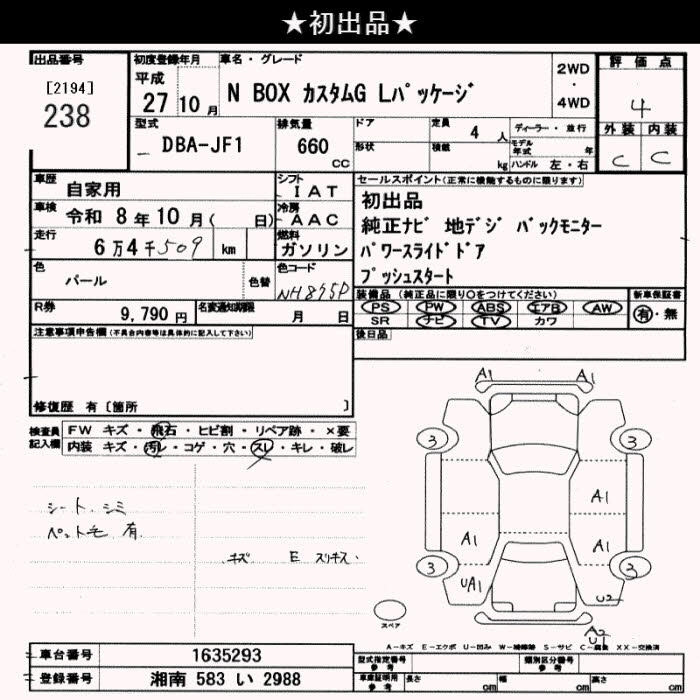 ★初出品★
出品番号
[2194]
238
初度登録年月
平成
27 10 月
車名・グレード
N BOX カスタムG Lパッケージ
2WD
・
4WD
評価点
4
外装 内装
C C
型式
DBA-JF1
排気量
660
cc
ドア
形状
定員
4 人
積載
kg
ディーラー・並行
モデル年式 年
ハンドル 左・右
車歴
自家用
シフト
IAT
車検
令和 8 年 10 月( 日)
冷房
AAC
走行
6 万 4 千 509 km
燃料
ガソリン
色
パール
色替
色コード
NH875P
R券
9,790 円
名変通知期限
月 日
セールスポイント(正常に機能するものに限ります)
初出品
純正ナビ 地デジ バックモニター
パワースライドドア
プッシュスタート
装備品 (純正品に限り○をつけてください)
PS PW ABS エアB AW
SR ナビ TV カワ
新車保証書
有・無
後日品
注意事項申告欄(不具合内容等は具体的に記入して下さい)
修復歴 有〔箇所 〕
検査員
記入欄
FW キズ・飛石・ヒビ割・リペア跡・×要
内装 キズ・汚レ・コゲ・穴・スレ・キレ・破レ
シート、シミ
ペット毛 有.
キズ E スリキズ.
A1 A1
3 3
A1
A1 A1
3 3
UA1 U2
A2
U1
スペア
A-キズ E-エクボ U-凹み W-補修跡 S-サビ C-腐食 XX-交換済
車台番号
1635293
登録番号
湘南 583 い 2988
型式指定番号
参考
類別区分番号
参考
車庫証明用
参考
長さ cm
幅 cm
高さ cm